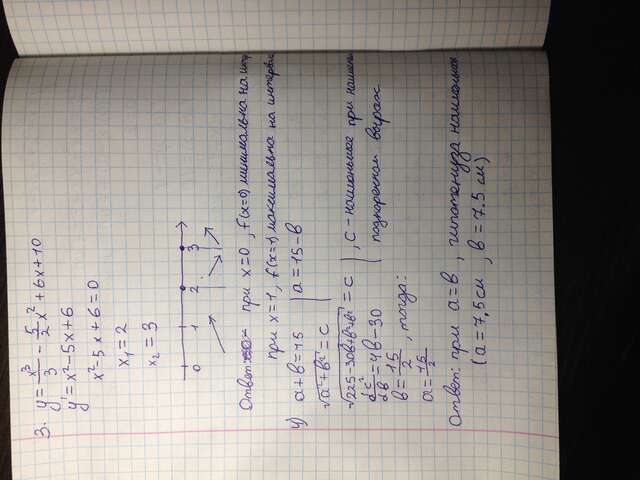 3. y = x³/3 - 5/2 x² + 6x + 10
y' = x² - 5x + 6
x² - 5x + 6 = 0
x₁ = 2
x₂ = 3
0 1 2 3
Ответ: при x=0, f(x=0) минимальна на
при x=1, f(x=1) максимальна на интервале
4) a+b=15 | a=15-b
√a²+b² = c
√225-30b+b²+b² = c | , c - наименьшее при
dc²/db = 4b-30 | подкоренном выраж
b = 15/2 , тогда:
a = 15/2
Ответ: при a=b , гипотенуза
(a=7,5 см , b=7.5 см)